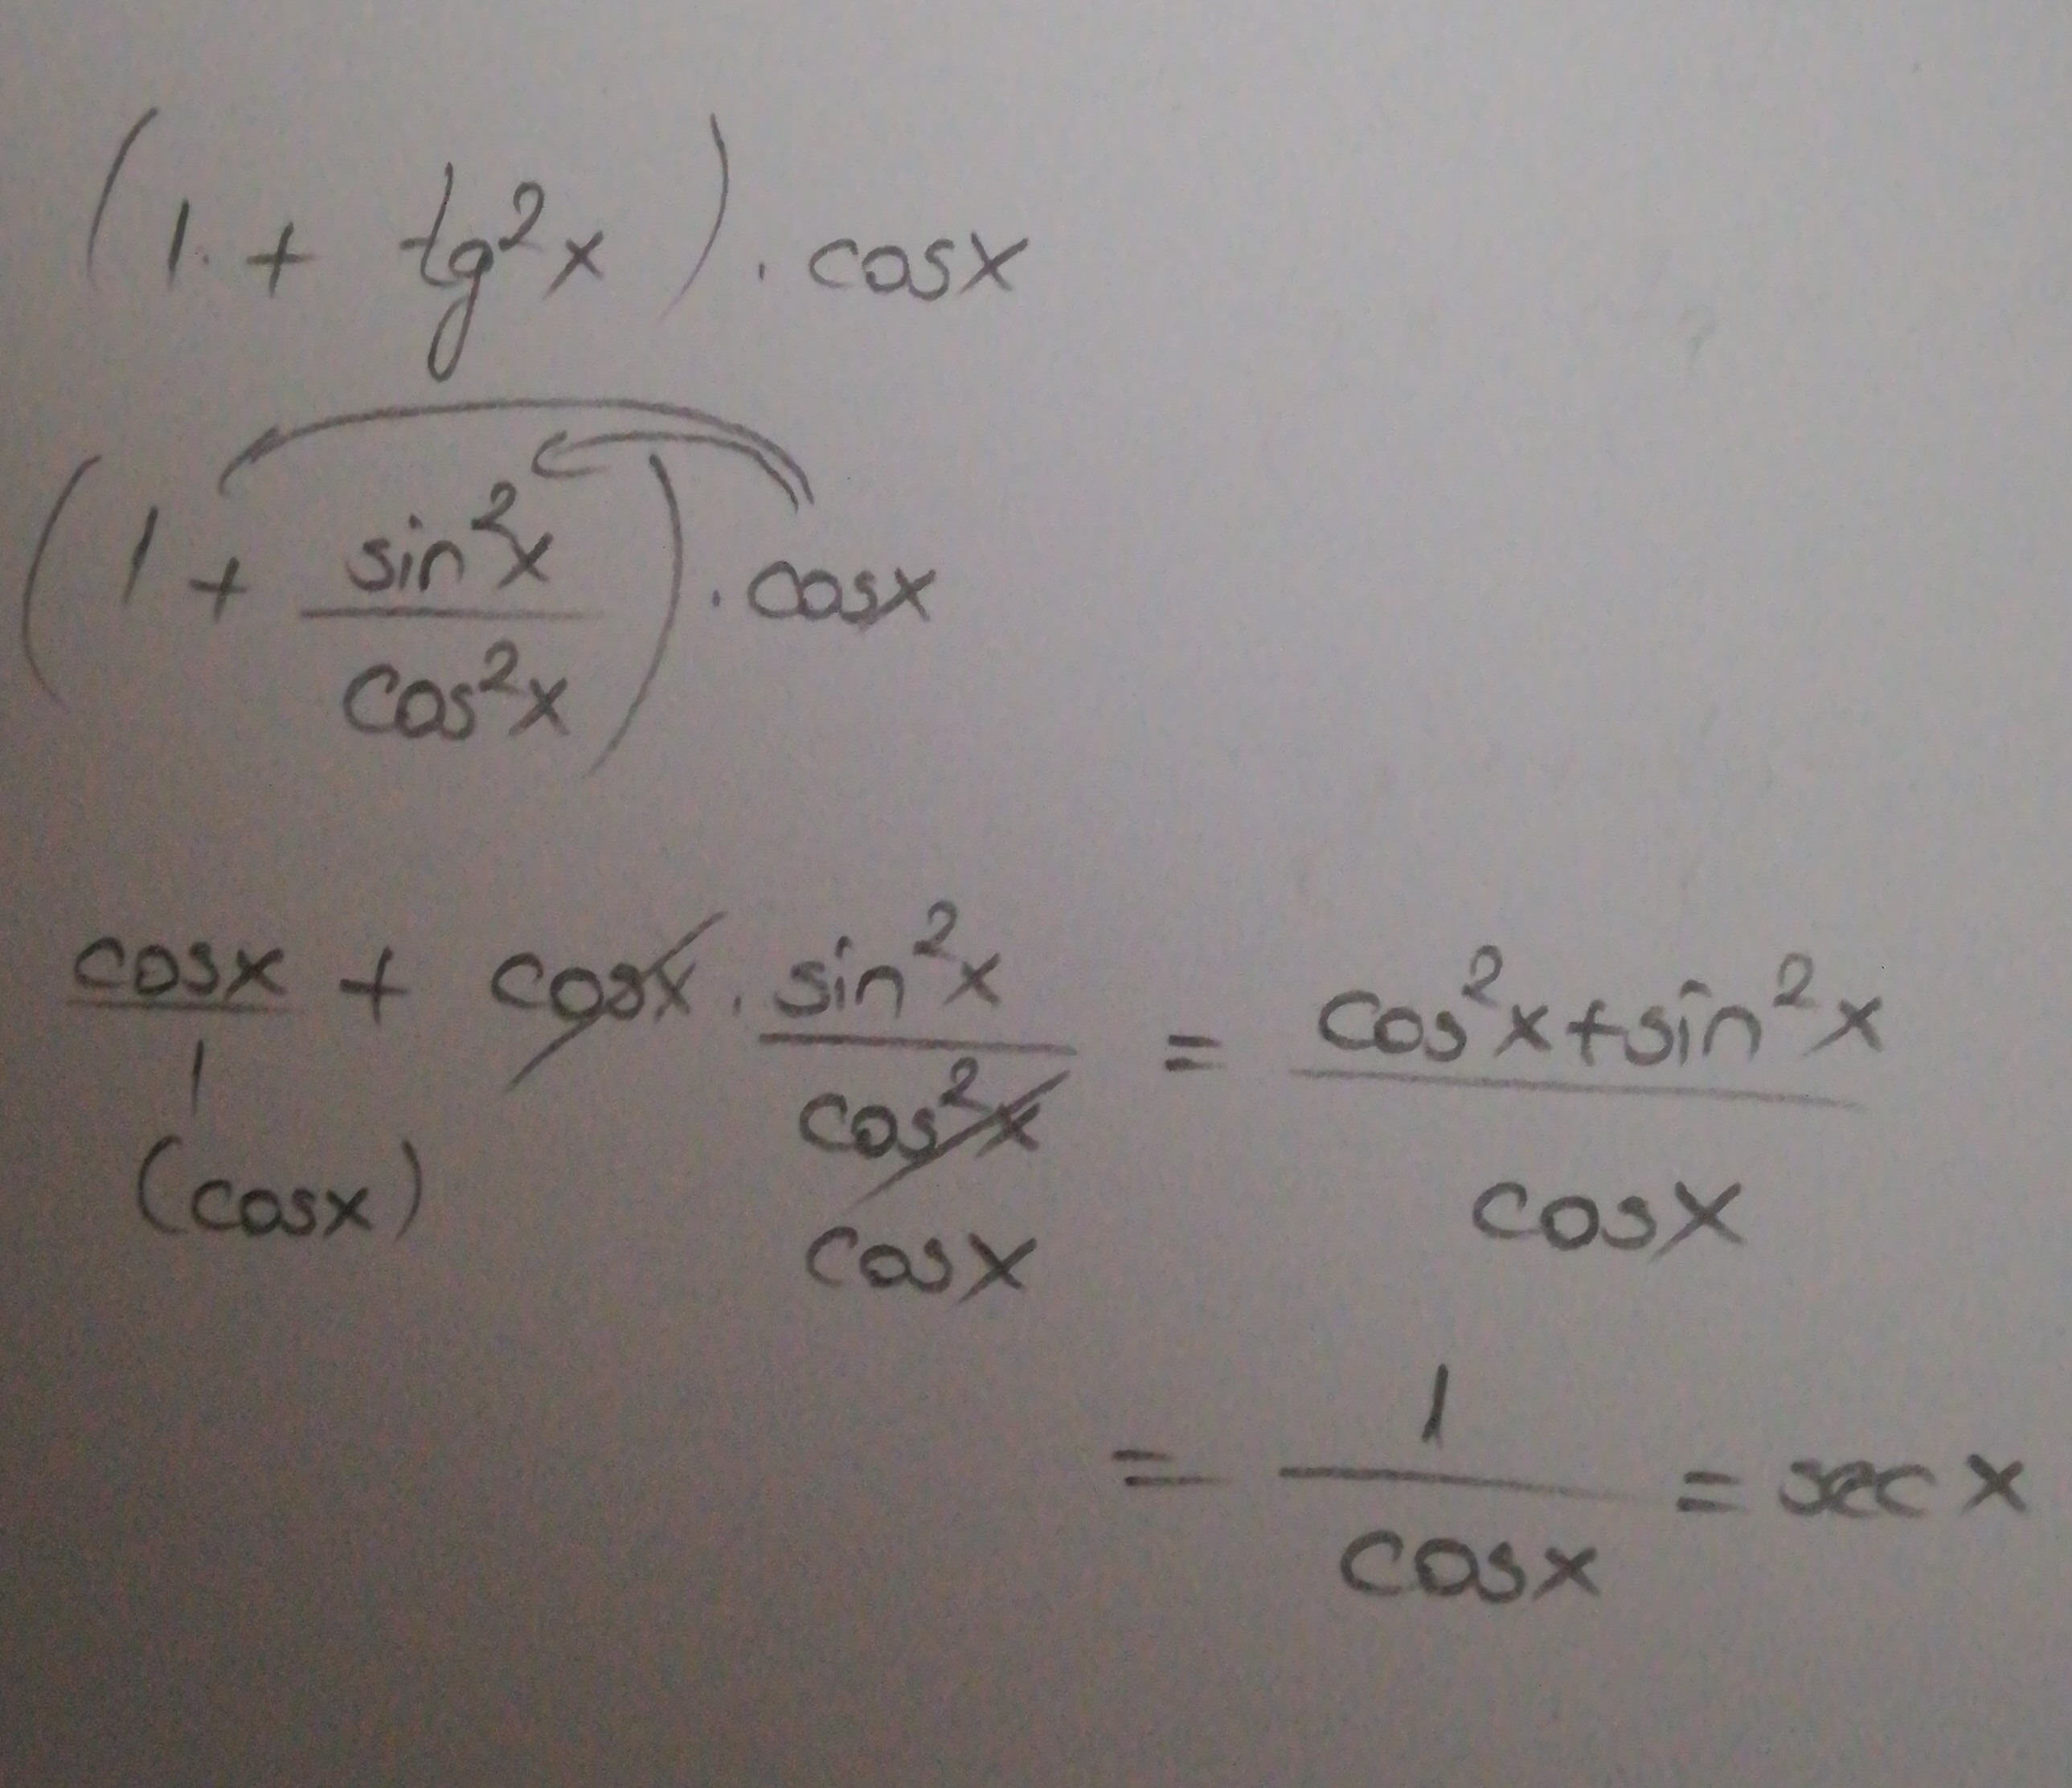 (1 + tg²x) . cosx
(1 + sin²x/cos²x) . cosx
cosx/1 + cosx . sin²x/cos²x = cos²x+sin²x/cosx
(cosx) cosx
= 1/cosx = sec x